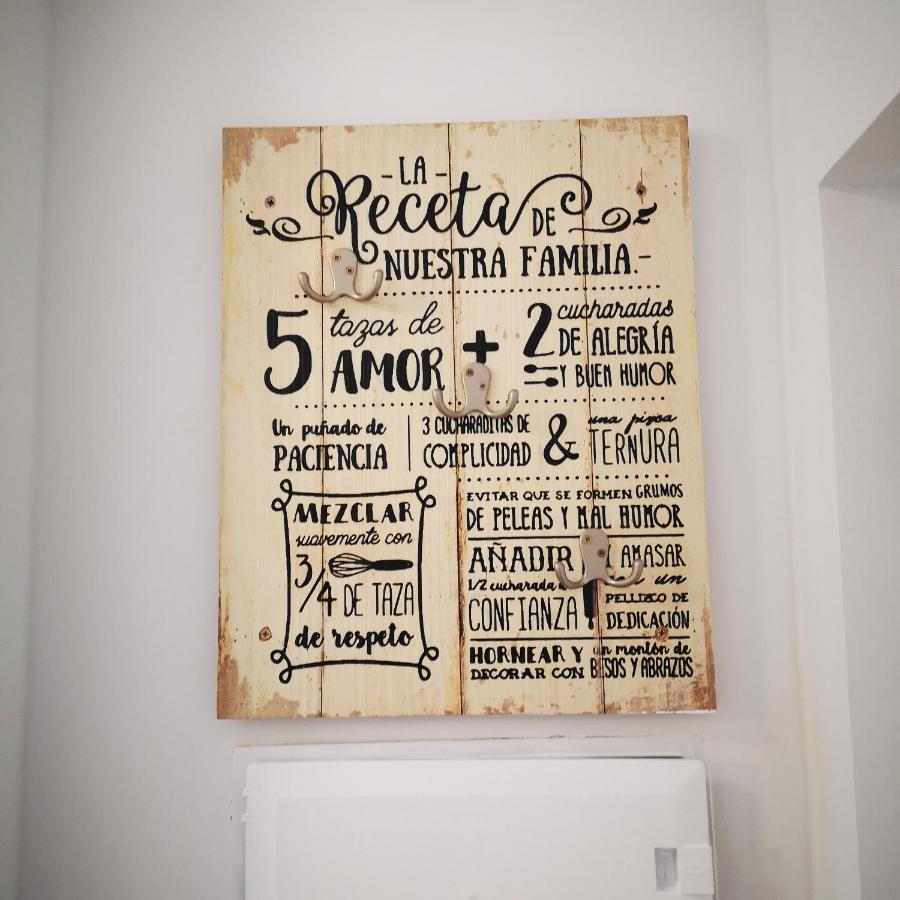 -LA-
Receta DE
NUESTRA FAMILIA.-
5 tazas de AMOR + 2 cucharadas DE ALEGRÍA Y BUEN HUMOR
Un puñado de PACIENCIA
3 CUCHARADITAS DE COMPLICIDAD & una pizca TERNURA
MEZCLAR
suavemente con
3/4 DE TAZA
de respeto
EVITAR QUE SE FORMEN GRUMOS
DE PELEAS Y MAL HUMOR
AÑADIR
1/2 cucharada
CONFIANZA
Y AMASAR
un
PELLIZCO DE
DEDICACIÓN
HORNEAR Y
DECORAR CON
un montón de
BESOS Y ABRAZOS